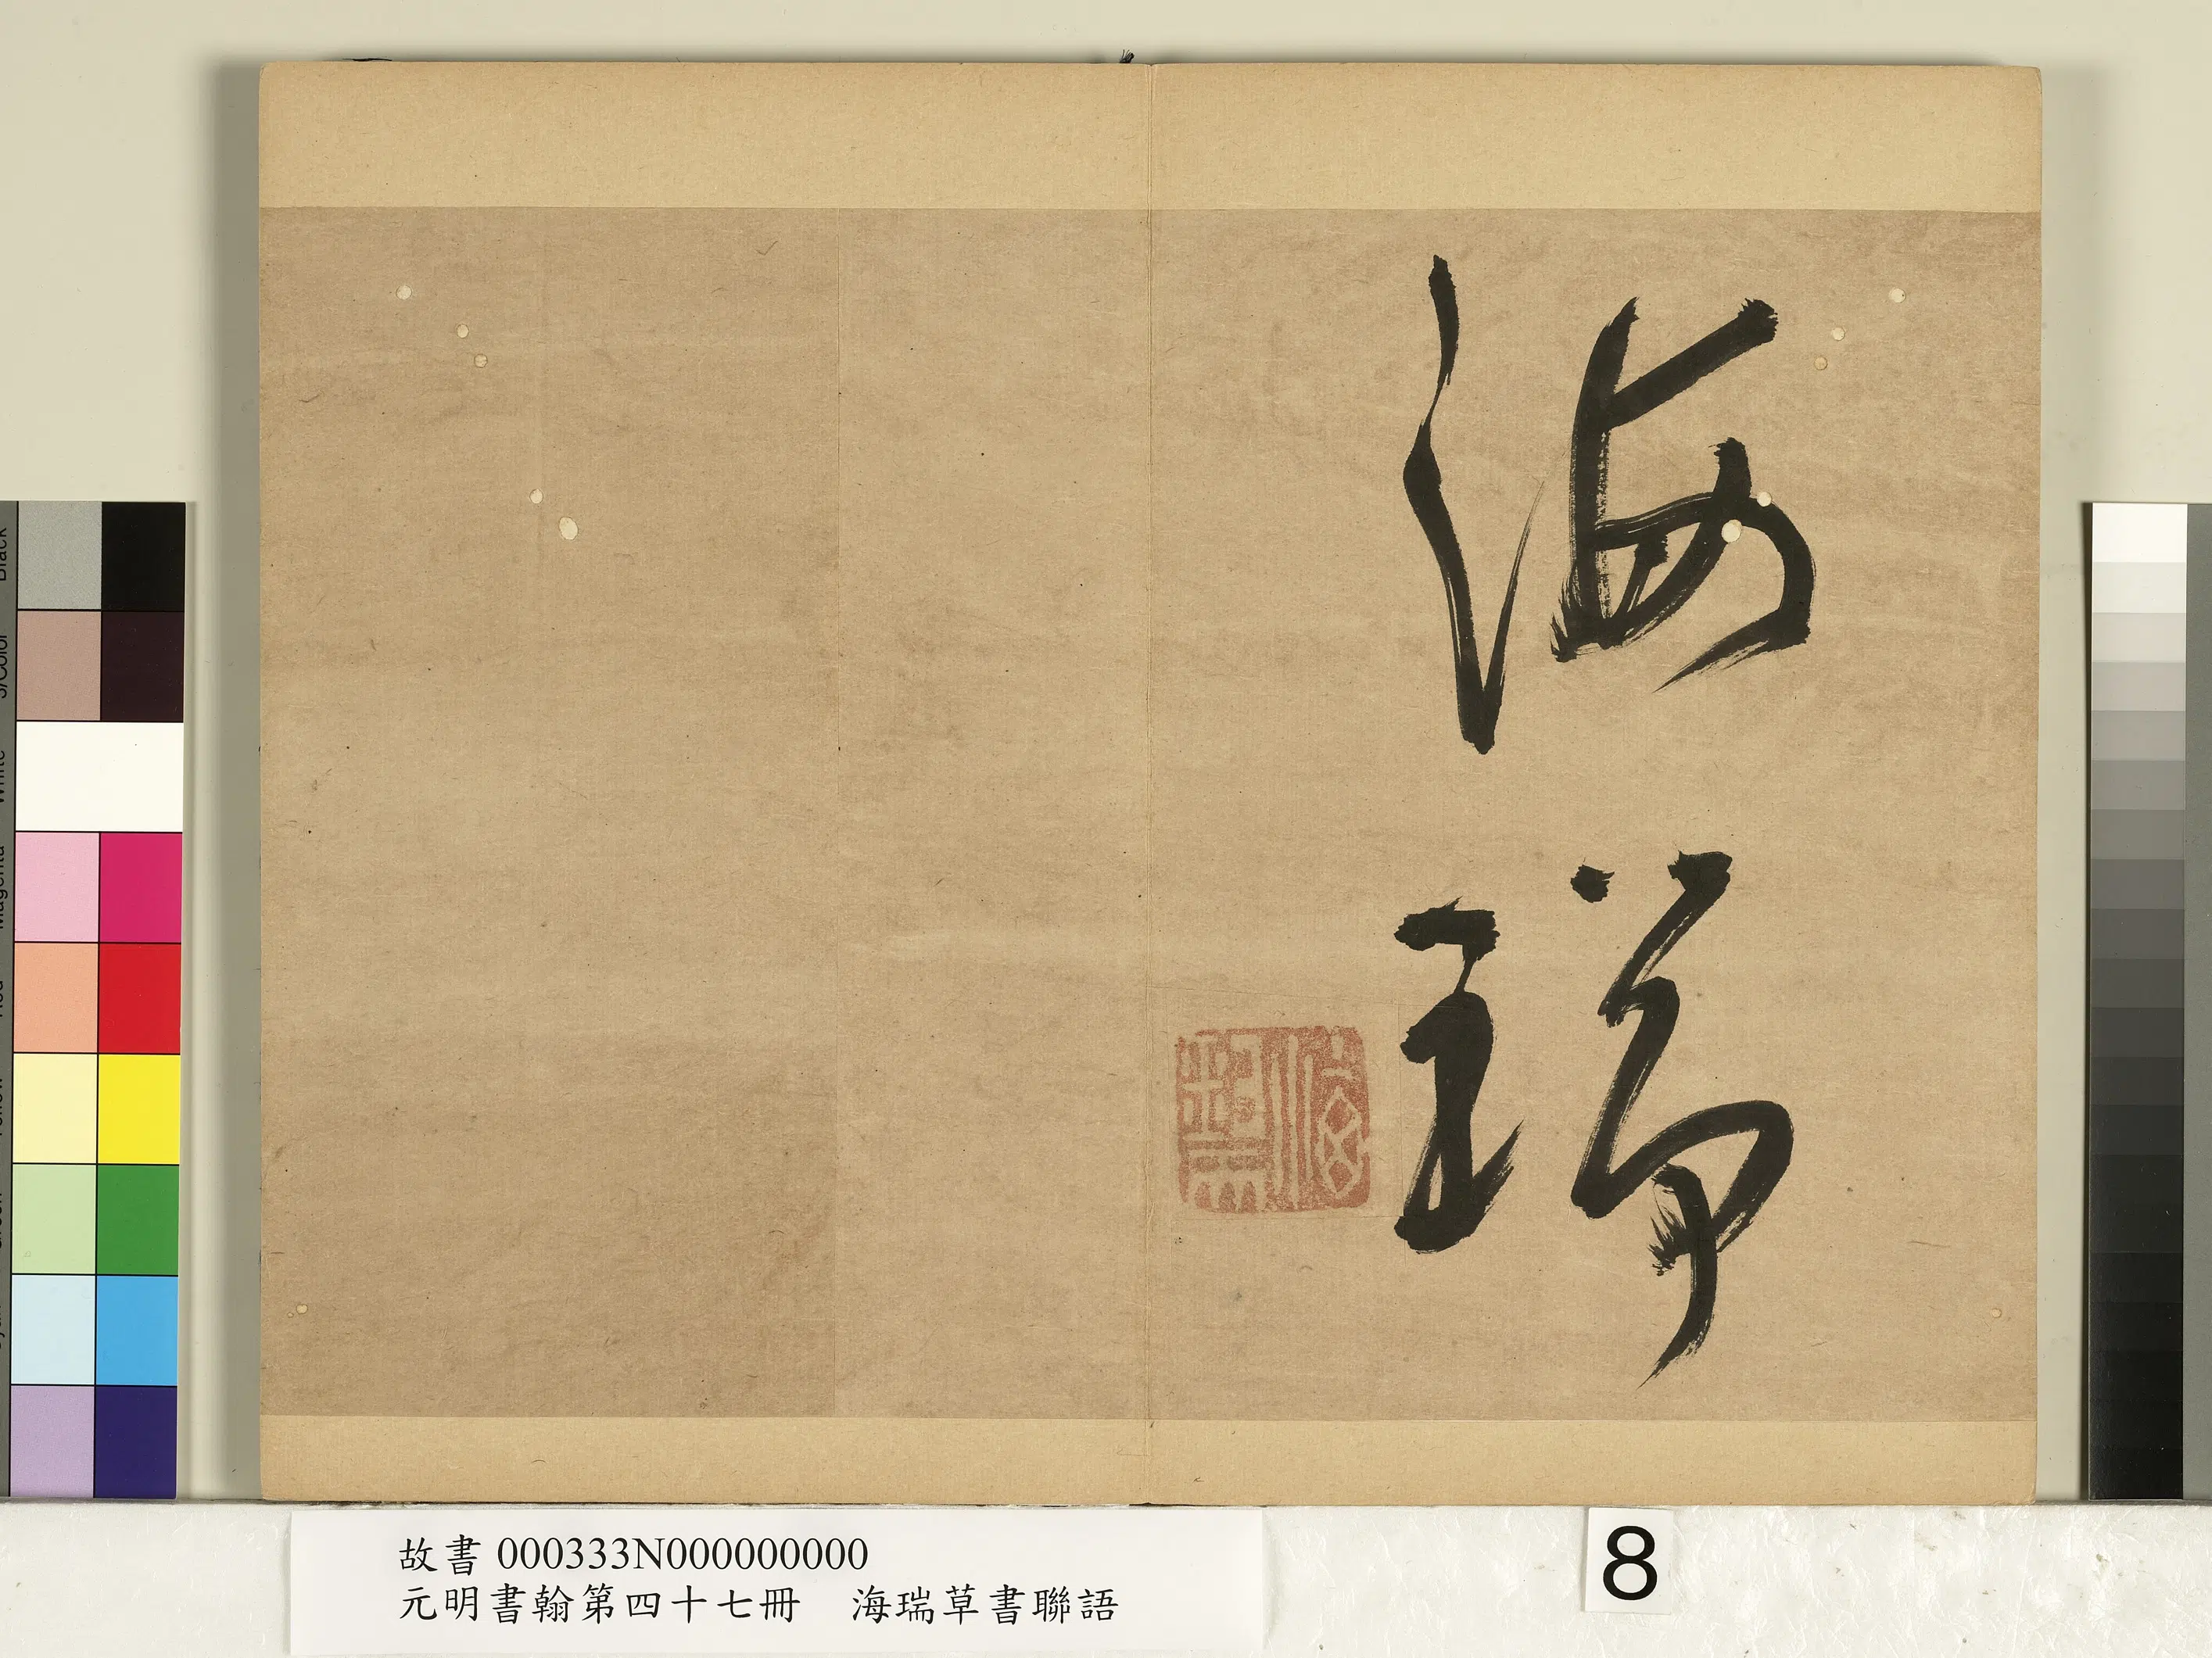 海瑞
故書 000333N000000000
元明書翰第四十七冊　海瑞草書聯語
8